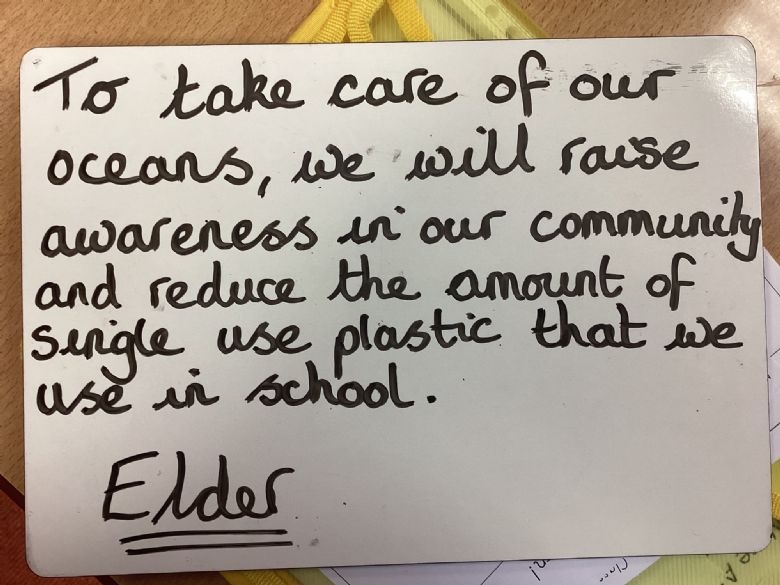 To take care of our
oceans, we will raise
awareness in our community
and reduce the amount of
single use plastic that we
use in school.
Elder